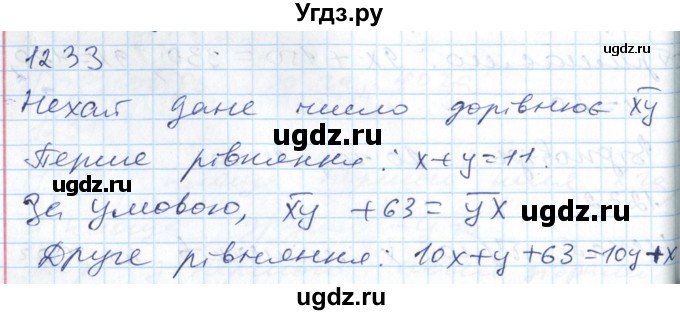 Угдз.ру
ugdz.ru
1233
ugdz.ru
Нехай дане число дорівнює x̅y̅
ugdz.ru
Перше рівняння: x+y=11.
ugdz.ru
За умовою, x̅y̅ + 63 = y̅x̅
ugdz.ru
Друге рівняння: 10x+y+63=10y+x
ugdz.ru